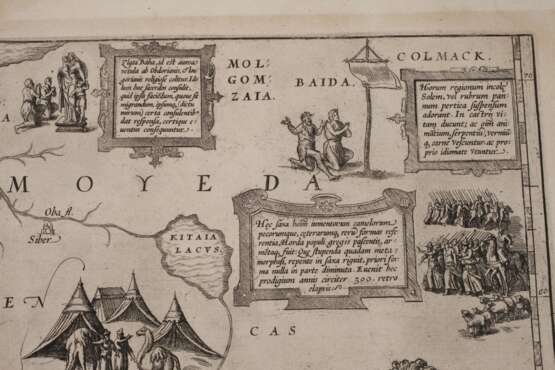 Zlata Baba, id est aurea
vetula ab Obdorianis, & Iou-
gorianis religiose colitur. Ido-
lum hoc sacerdos consulit,
quid ipsis faciendum, quoue sit
migrandum, ipsumq; (dictu
mirum) certa consulentib9
dat responsa, certique e-
uentus consequuntur.
MOL-
GOM-
ZAIA.
BAIDA.
COLMACK.
Horum regionum incolę
Solem, vel rubrum pan-
num pertica suspensum
adorant. In castris vi-
tam ducunt; ac oĩm ani-
mãtium, serpentiũ, vermiũ-
q; carne vescuntur. ac pro-
prio idiomate vtuntur.
70
A
MOYEDA
Oba fl.
Siber
KITAIA
LACVS.
Hęc saxa hoĩm iumentorum camelorum
pecorumque, cęterarumq; rerũ formas refe-
rentia, Horda populi gregis pascentis, ar-
mẽtaq; fuit: Quę stupenda quadam meta-
morphosi, repente in saxa riguit, priori for-
ma nulla in parte diminuta. Euenit hoc
prodigium annis circiter 300. retro
elapsis.
EN
CAS
60